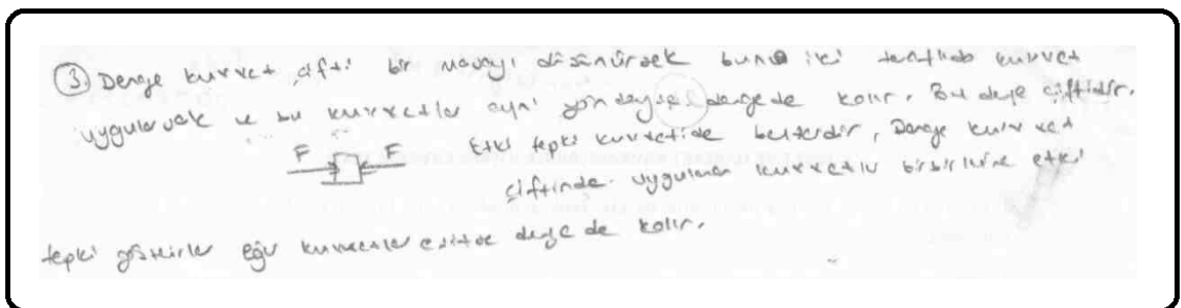 ③ Denge kuvvet çifti bir masayı düşünürsek buna iki taraftan kuvvet
uygularsak ve bu kuvvetler aynı yöndeyse dengede kalır. Bu denge çiftidir.
F F Etki tepki kuvvetide benzerdir, Denge kuvvet
çiftinde uygulanan kuvvetler birbirine etki
tepki gösterirler eğer kuvvetler eşitse dengede kalır.